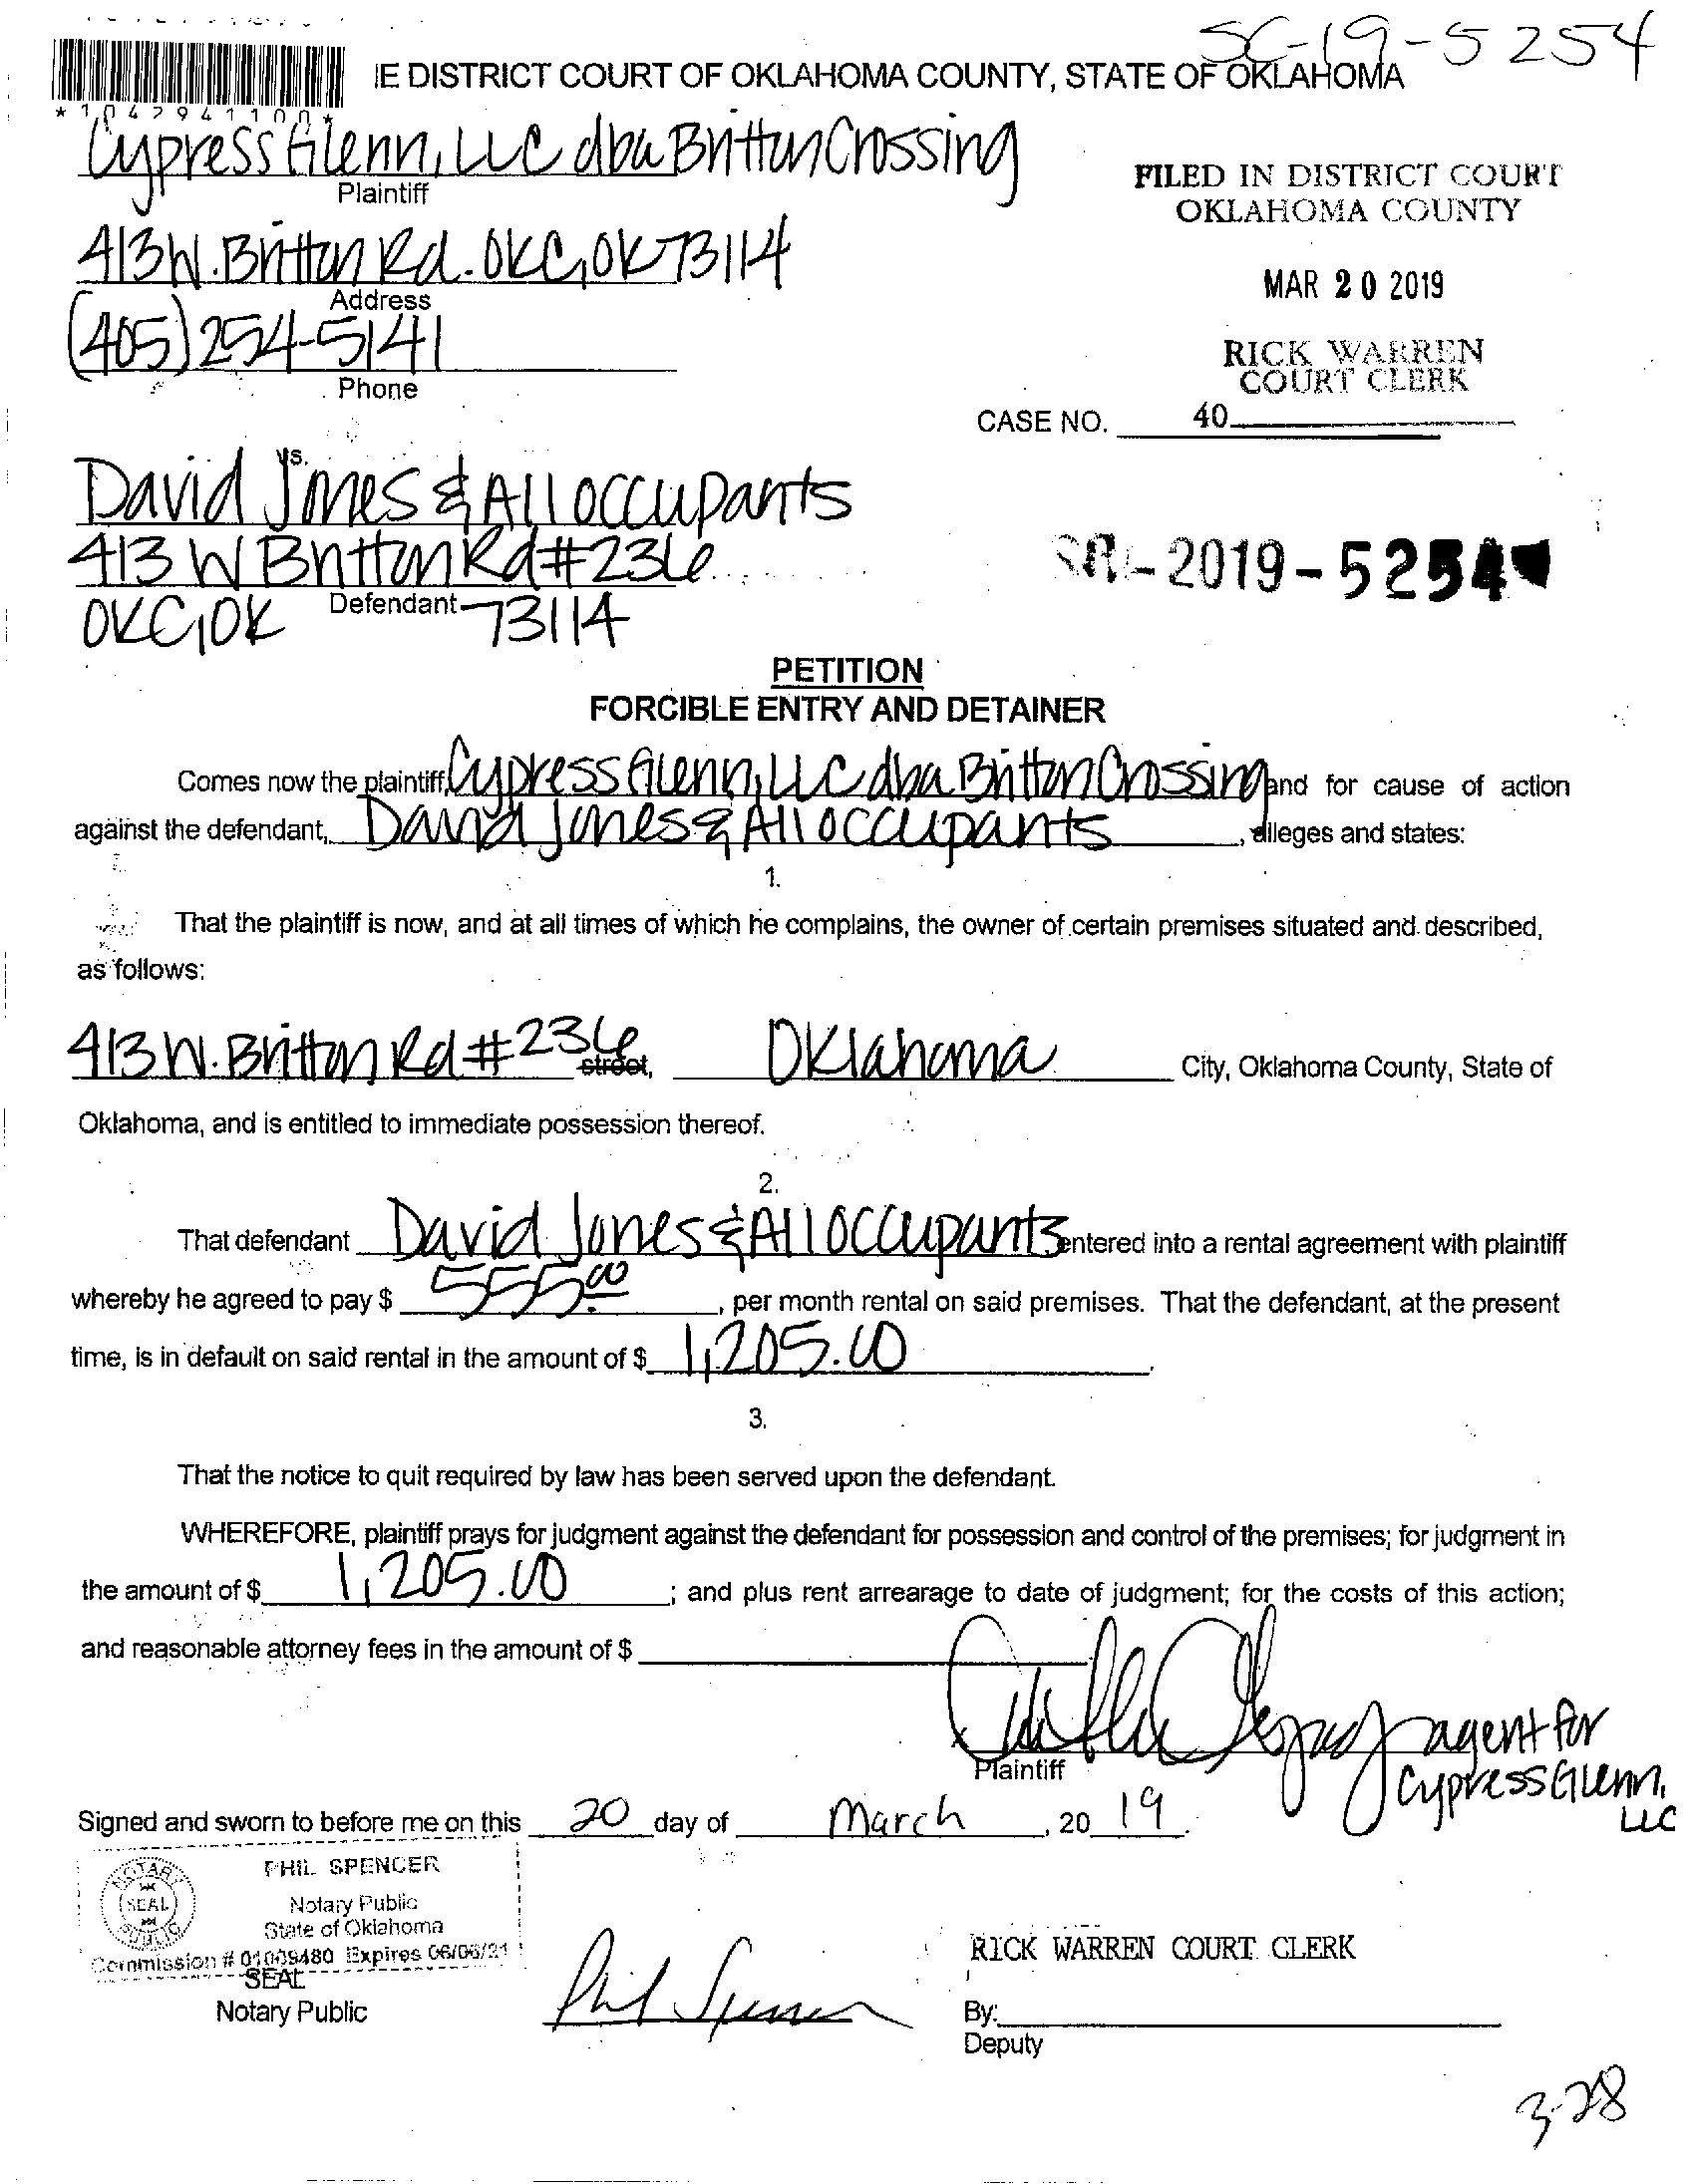 SC-19-5254
IE DISTRICT COURT OF OKLAHOMA COUNTY, STATE OF OKLAHOMA
*1042941100*
Cypress Glenn, LLC dba Britton Crossing
Plaintiff
FILED IN DISTRICT COURT
OKLAHOMA COUNTY
413 W. Britton Rd. OKC, OK 73114
Address
MAR 20 2019
(405) 254-5141
Phone
RICK WARREN
COURT CLERK
CASE NO. 40
vs.
David Jones & All occupants
413 W Britton Rd #236
Defendant
OKC, OK 73114
-2019-5254
PETITION
FORCIBLE ENTRY AND DETAINER
Comes now the plaintiff, Cypress Glenn, LLC dba Britton Crossing and for cause of action
against the defendant, David Jones & All occupants, alleges and states:
1.
That the plaintiff is now, and at all times of which he complains, the owner of certain premises situated and described,
as follows:
413 W. Britton Rd #236 street, Oklahoma City, Oklahoma County, State of
Oklahoma, and is entitled to immediate possession thereof.
2.
That defendant David Jones & All occupants entered into a rental agreement with plaintiff
whereby he agreed to pay $ 555.00, per month rental on said premises. That the defendant, at the present
time, is in default on said rental in the amount of $ 1,205.00.
3.
That the notice to quit required by law has been served upon the defendant.
WHEREFORE, plaintiff prays for judgment against the defendant for possession and control of the premises; for judgment in
the amount of $ 1,205.00; and plus rent arrearage to date of judgment; for the costs of this action;
and reasonable attorney fees in the amount of $
agent for
Plaintiff
Cypress Glenn, LLC
Signed and sworn to before me on this 20 day of March, 20 19.
PHIL SPENCER
Notary Public
State of Oklahoma
Commission # 01009480 Expires 06/06/21
NOTARY PUBLIC
SEAL
SEAL
Notary Public
Phil Spencer
RICK WARREN COURT CLERK
By:
Deputy
3-28